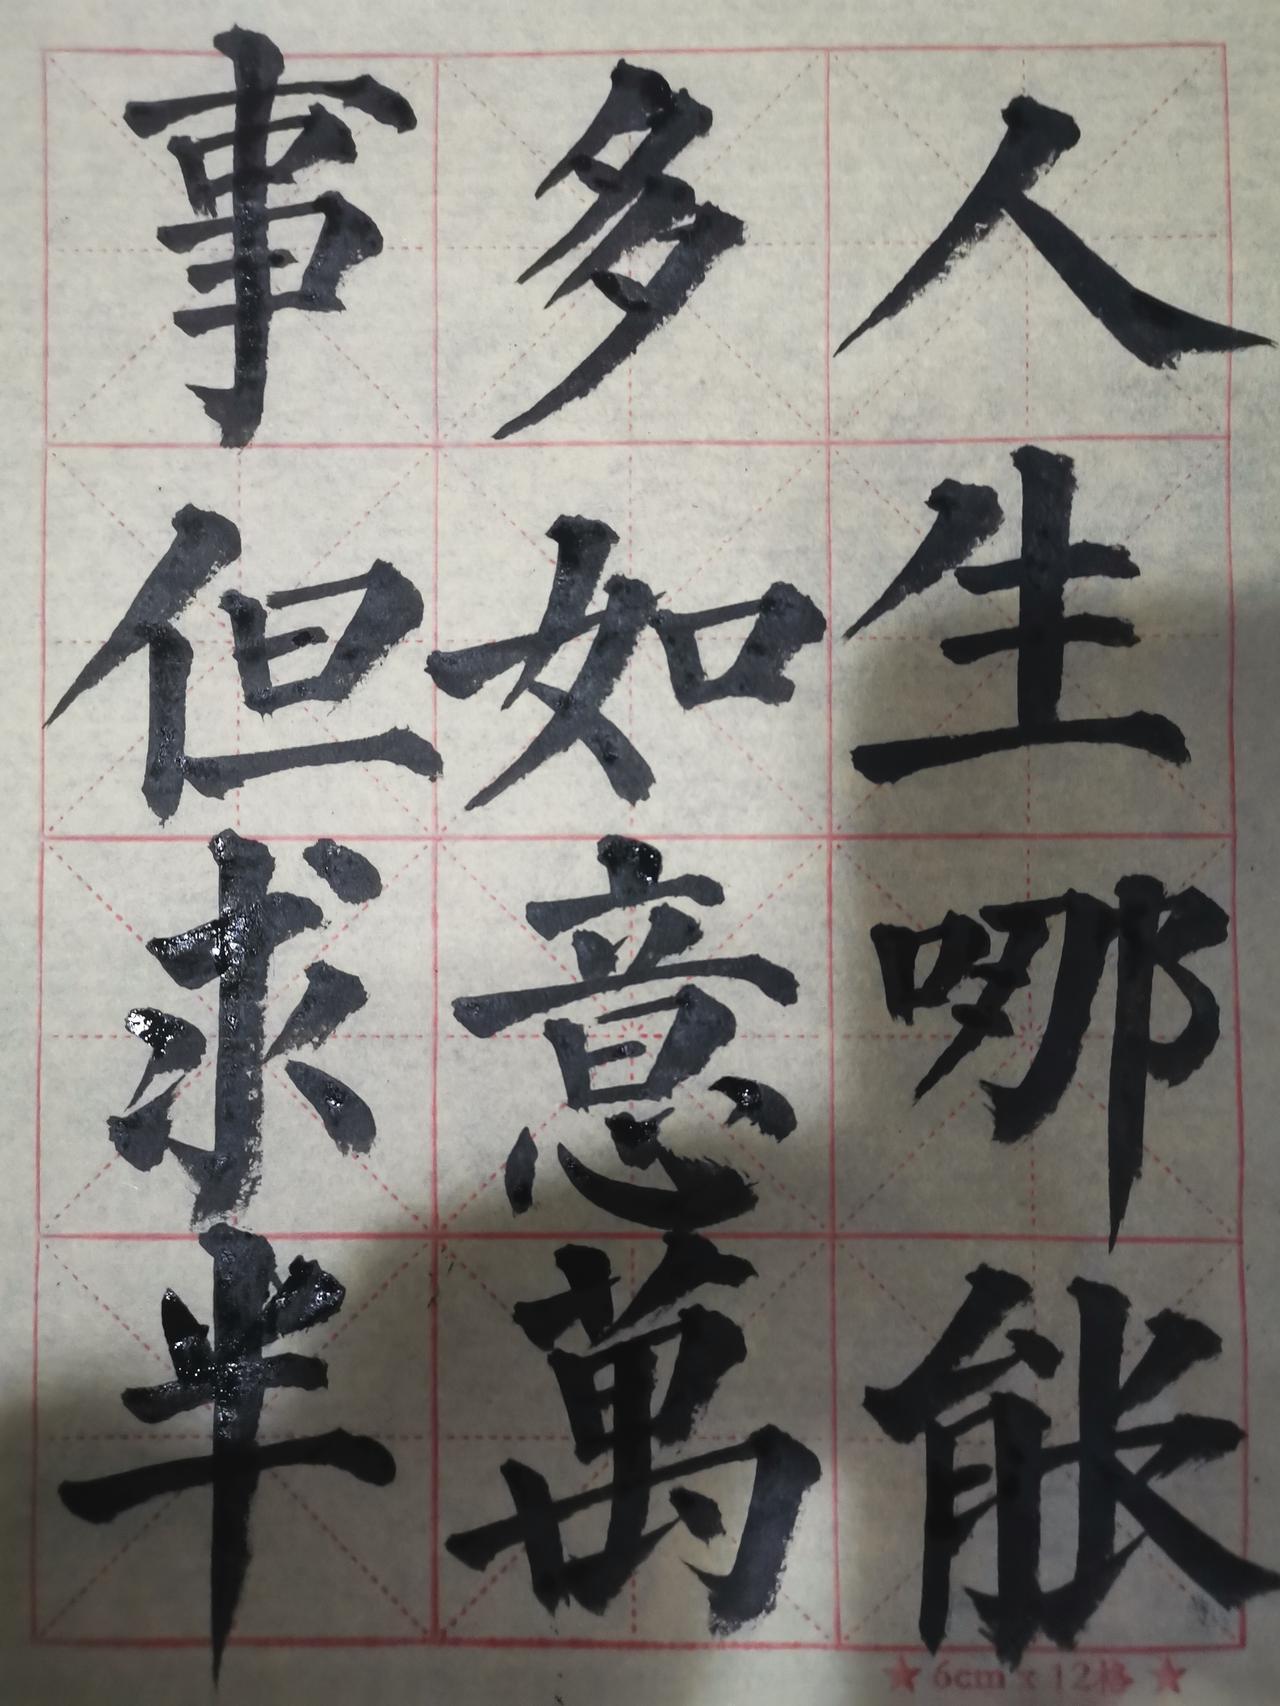 人生哪能
多如意萬
事但求半
★ 6cm x 12格 ★